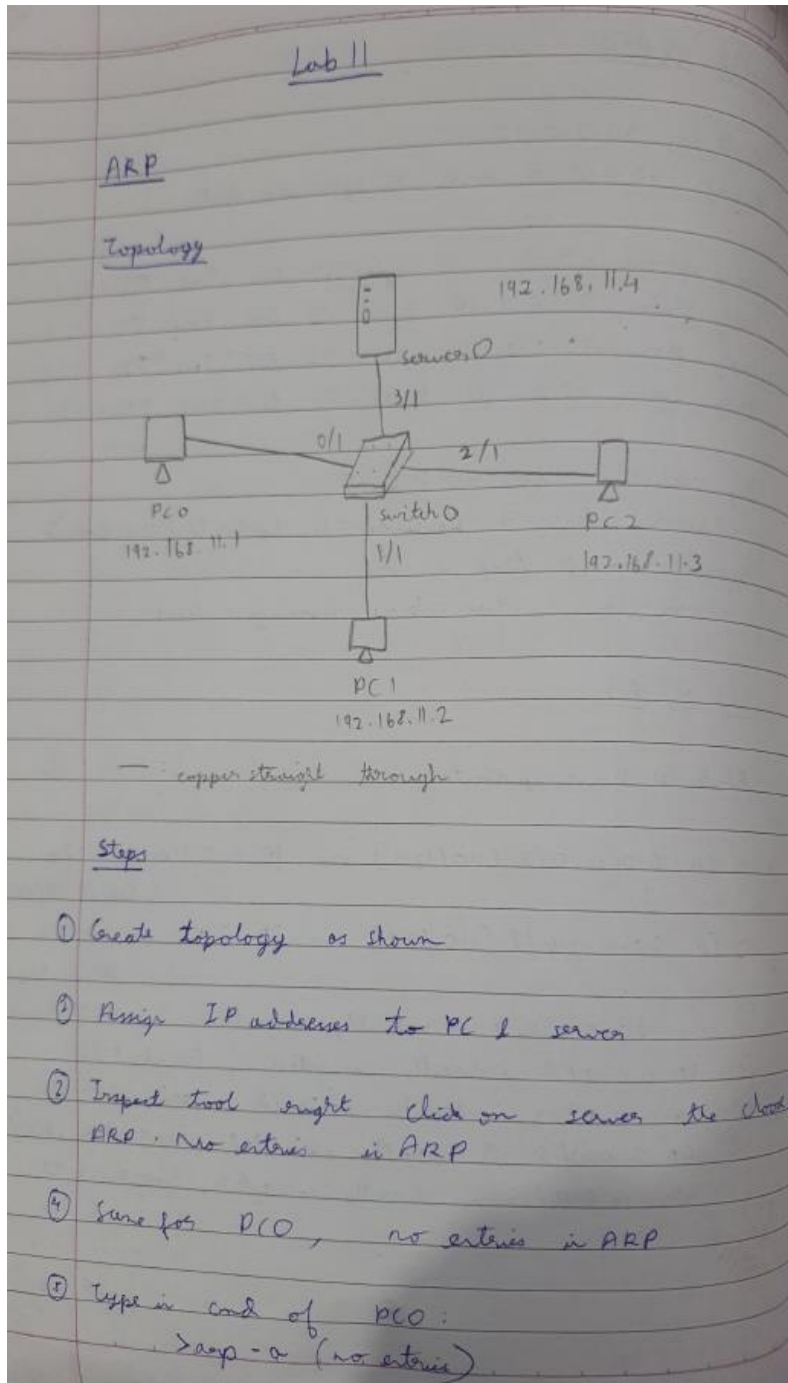 Lab 11
ARP
Topology
192.168.11.4
server0
3/1
0/1
2/1
PC0
switch0
PC2
192.168.11.1
1/1
192.168.11.3
PC1
192.168.11.2
— copper straight through
Steps
① Create topology as shown
② Assign IP addresses to PC & server
③ Inspect tool right click on server the
ARP. No entries in ARP
④ Same for PC0, no entries in ARP
⑤ Type in cmd of PC0:
>arp -a (no entries)